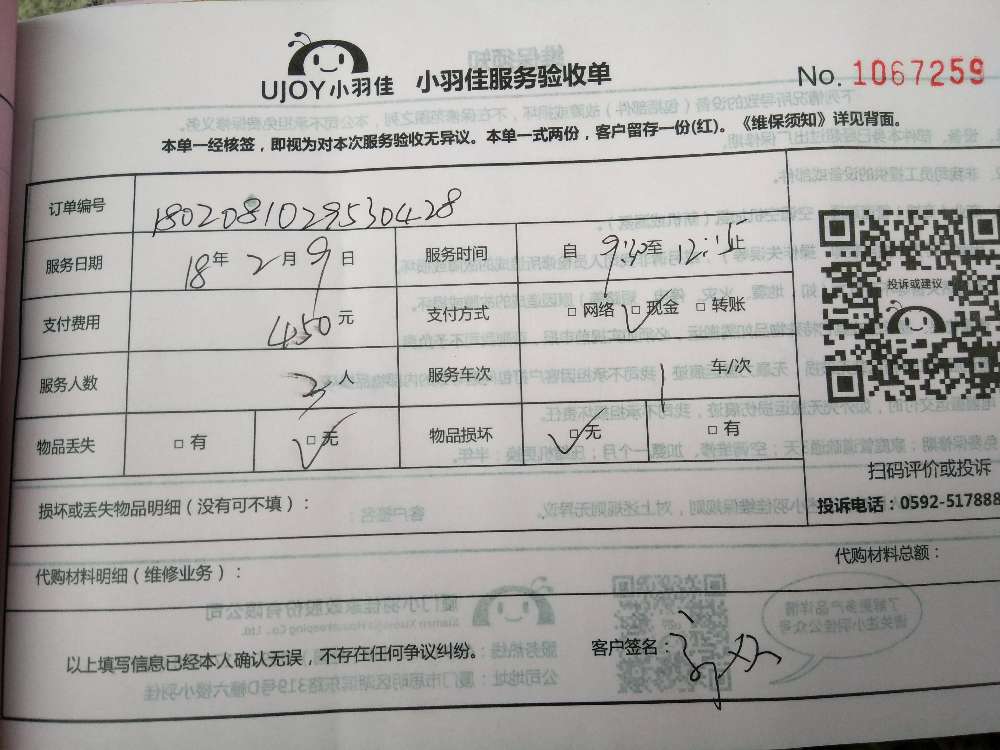 UJOY小羽佳 小羽佳服务验收单 No. 1067259
本单一经核签，即视为对本次服务验收无异议。本单一式两份，客户留存一份(红)。《维保须知》详见背面。
订单编号 180208102953０428
服务日期 18年2月9日 服务时间 自 9:30至 12: 止
支付费用 450元 支付方式 □网络 □现金 □转账
投诉或建议
服务人数 3人 服务车次 1 车/次
物品丢失 □有 □无 物品损坏 □无 □有
扫码评价或投诉
损坏或丢失物品明细（没有可不填）：
投诉电话：0592-517888
代购材料明细（维修业务）： 代购材料总额：
以上填写信息已经本人确认无误，不存在任何争议纠纷。 客户签名：